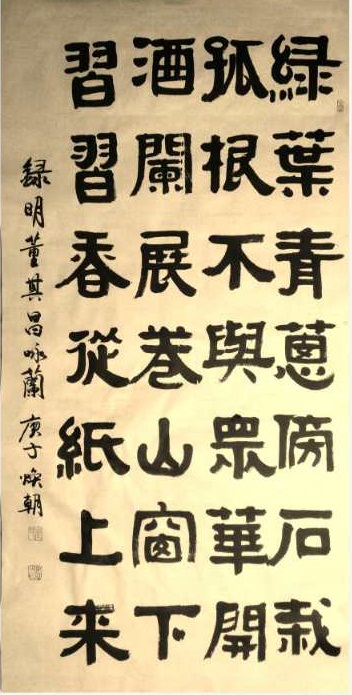 緑葉青蔥傍石栽
孤根不與眾華開
酒闌展卷山窗下
習習香從紙上来
録明董其昌咏蘭 庚子 煥朝